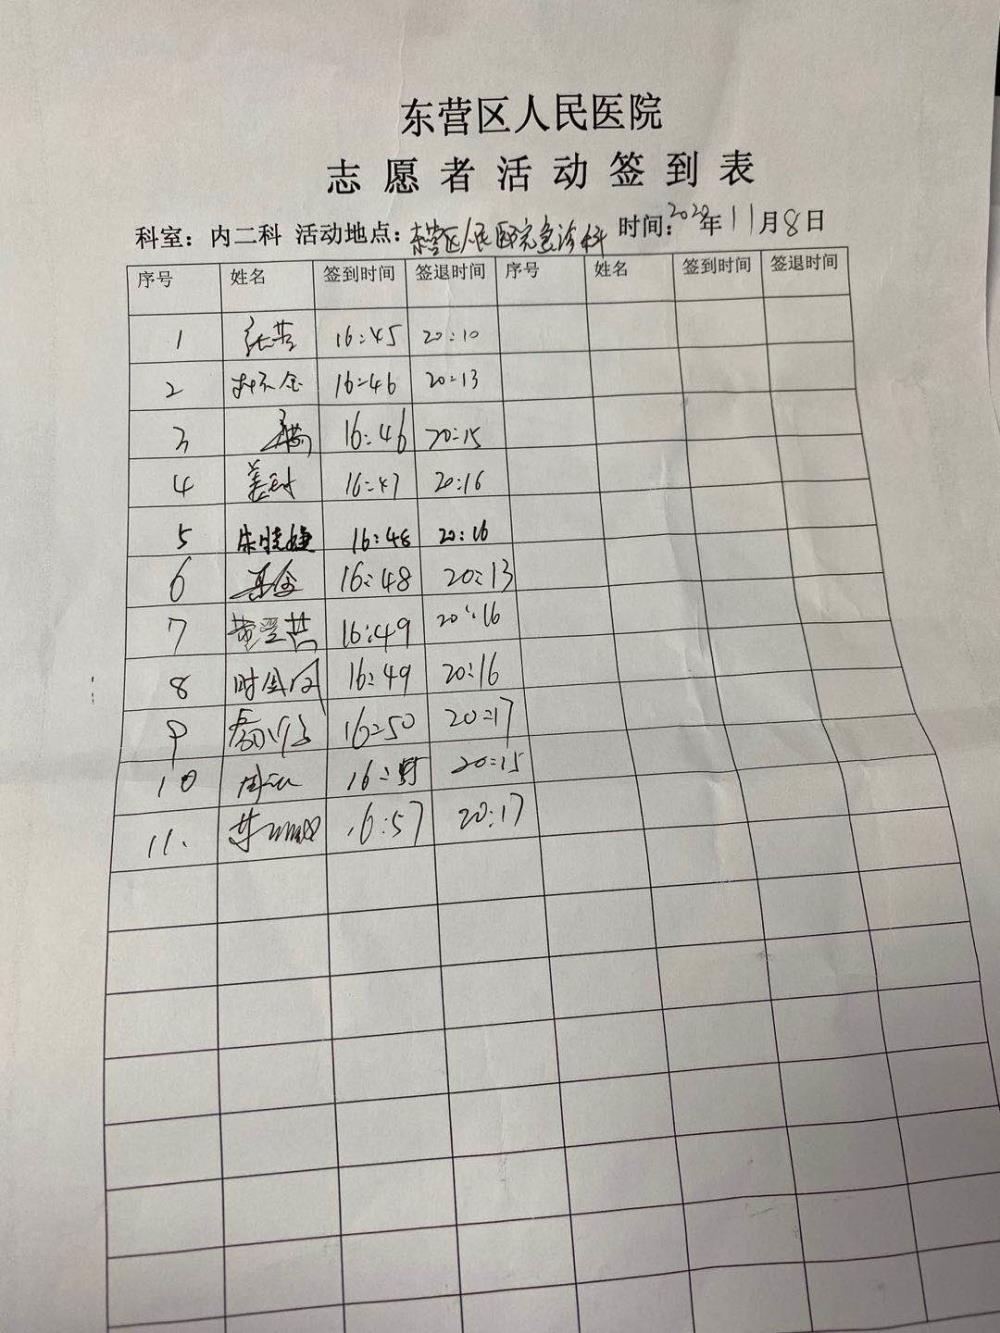 东营区人民医院
志愿者活动签到表
科室：内二科 活动地点：东营区人民医院急诊科 时间：2020年11月8日
序号 姓名 签到时间 签退时间 序号 姓名 签到时间 签退时间
1 张芸 16:45 20:10
2 16:46 20:13
3 16:46 20:15
4 16:47 20:16
5 宋晓婕 16:48 20:16
6 16:48 20:13
7 16:49 20:16
8 16:49 20:16
9 16:50 20:17
10 16: 20:15
11. 16:57 20:17